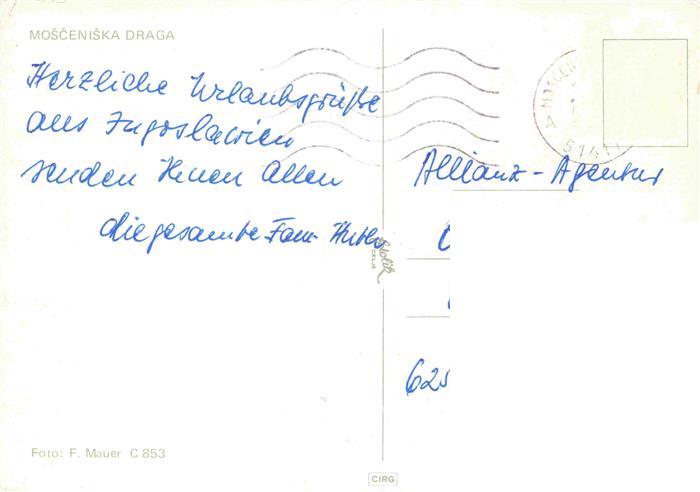 MOŠČENIŠKA DRAGA
Herzliche Urlaubsgrüße
aus Jugoslawien
senden Ihnen Allen
die gesamte Fam.
Allianz - Agentur
625
51411
A
Foto: F. Mauer C 853
CIRG